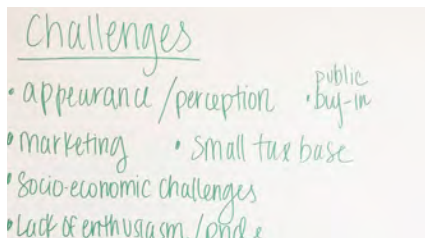 Challenges
• appearance/perception
public
• buy-in
• marketing • small tax base
• Socio-economic challenges
• Lack of enthusiasm/pride